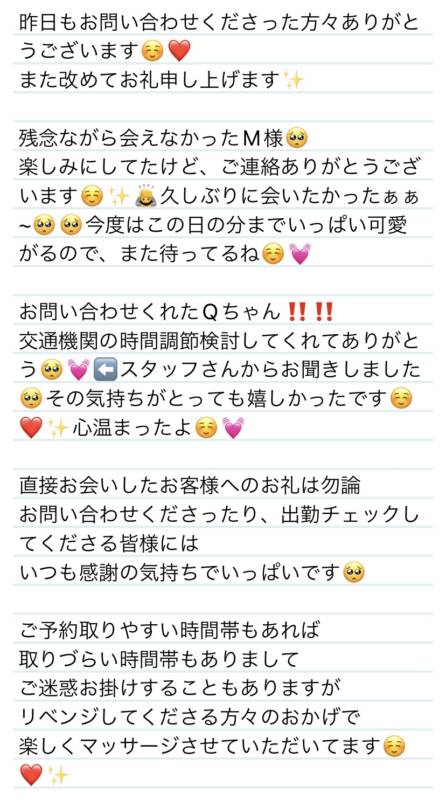 昨日もお問い合わせくださった方々ありがと
うございます☺️❤️
また改めてお礼申し上げます✨
残念ながら会えなかったM様🥺
楽しみにしてたけど、ご連絡ありがとうござ
います☺️✨🙇‍♀️久しぶりに会いたかったぁぁ
~🥺🥺今度はこの日の分までいっぱい可愛
がるので、また待ってるね☺️💓
お問い合わせくれたQちゃん‼️‼️
交通機関の時間調節検討してくれてありがと
う🥺💓⬅️スタッフさんからお聞きしました
🥺その気持ちがとっても嬉しかったです☺️
❤️✨心温まったよ☺️💓
直接お会いしたお客様へのお礼は勿論
お問い合わせくださったり、出勤チェックし
てくださる皆様には
いつも感謝の気持ちでいっぱいです🥺
ご予約取りやすい時間帯もあれば
取りづらい時間帯もありまして
ご迷惑お掛けすることもありますが
リベンジしてくださる方々のおかげで
楽しくマッサージさせていただいてます☺️
❤️✨